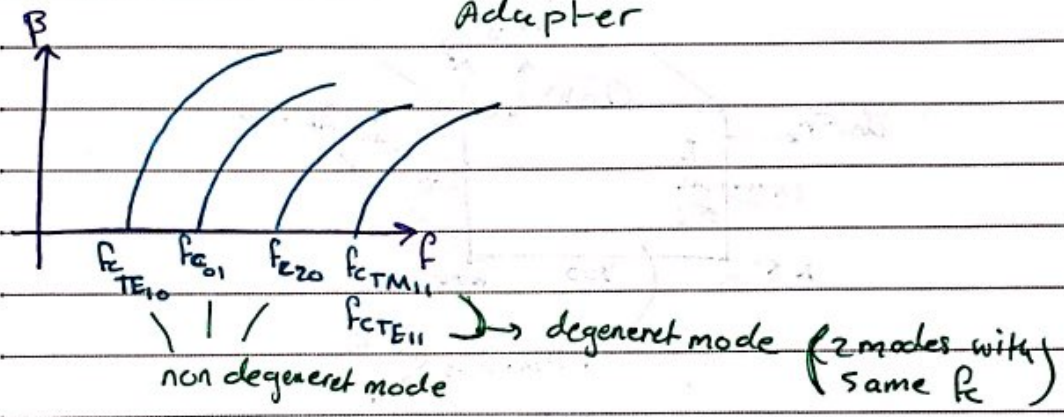 Adapter
β
f
fc TE10 fc01 fc20 fc TM11
fc TE11 → degeneret mode (2 modes with same fc)
non degeneret mode